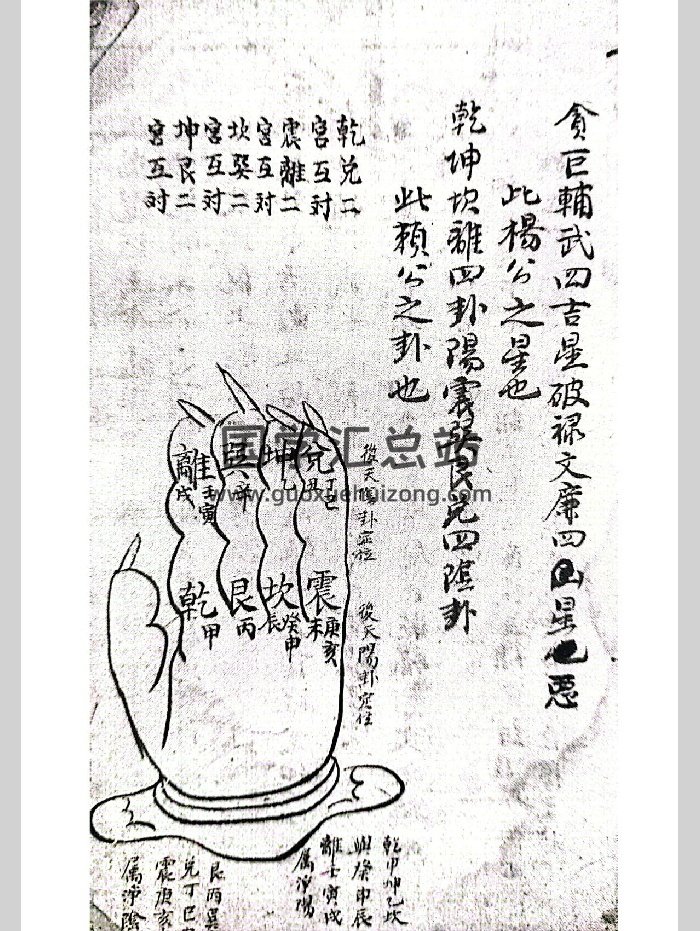 貪巨輔武四吉星破禄文廉四凶星惡
此楊公之星也
乾坤坎離四卦陽震巽艮兌四陰卦
此賴公之卦也
乾兌二
宮互対
震離二
宮互対
坎癸二
宮互対
坤艮二
宮互対
後天陰卦定位
後天陽卦定位
兌
丁巳
丑
坤
乙
巽
辛
離
壬寅
戌
震
庚亥
未
坎
癸申
辰
艮
丙
乾
甲
乾甲坤乙坎
與癸申辰
離壬寅戌
属淨陽
艮丙巽
兌丁巳
震庚亥
属淨陰
国学汇总站
www.guoxuehuizong.com